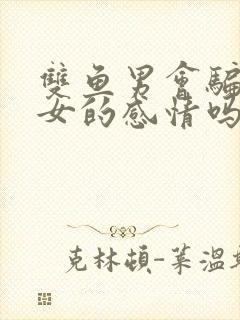 雙魚男會騙
女的感情嗎
克林頓-萊溫